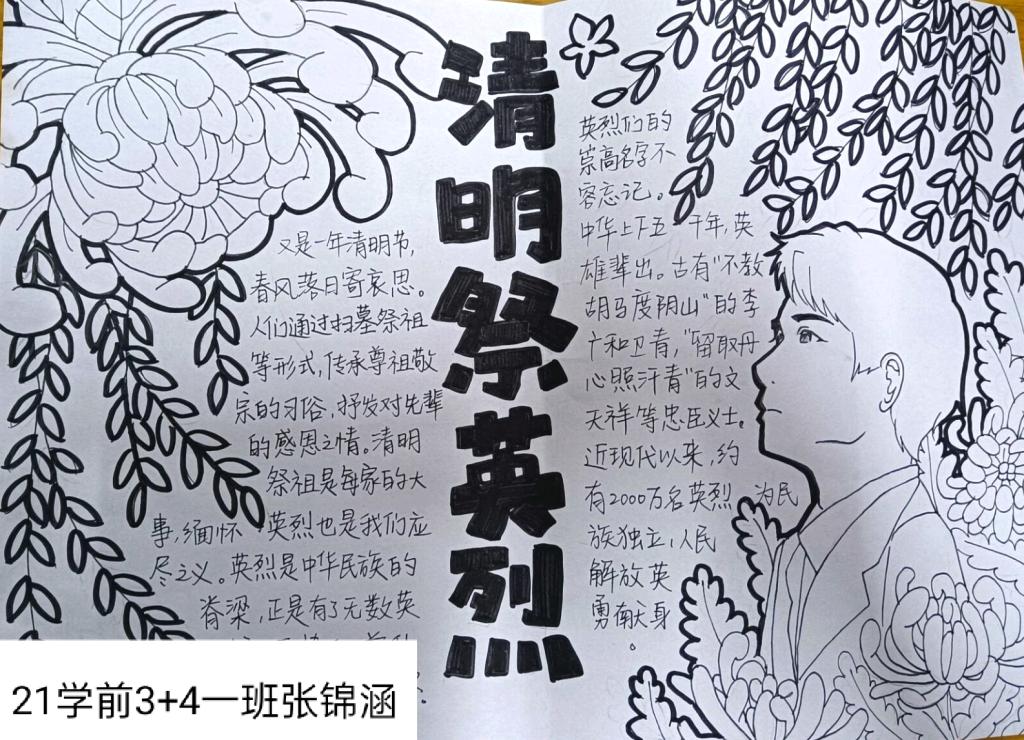 清明祭英烈
又是一年清明节,
春风落日寄哀思。
人们通过扫墓祭祖
等形式,传承尊祖敬
宗的习俗,抒发对先辈
的感恩之情。清明
祭祖是每家的大
事,缅怀英烈也是我们应
尽之义。英烈是中华民族的
脊梁,正是有了无数英
英烈们的
崇高名字不
容忘记。
中华上下五千年,英
雄辈出。古有"不教
胡马度阴山"的李
广和卫青,"留取丹
心照汗青"的文
天祥等忠臣义士。
近现代以来,约
有2000万名英烈为民
族独立,人民
解放英
勇献身
。
21学前3+4一班张锦涵